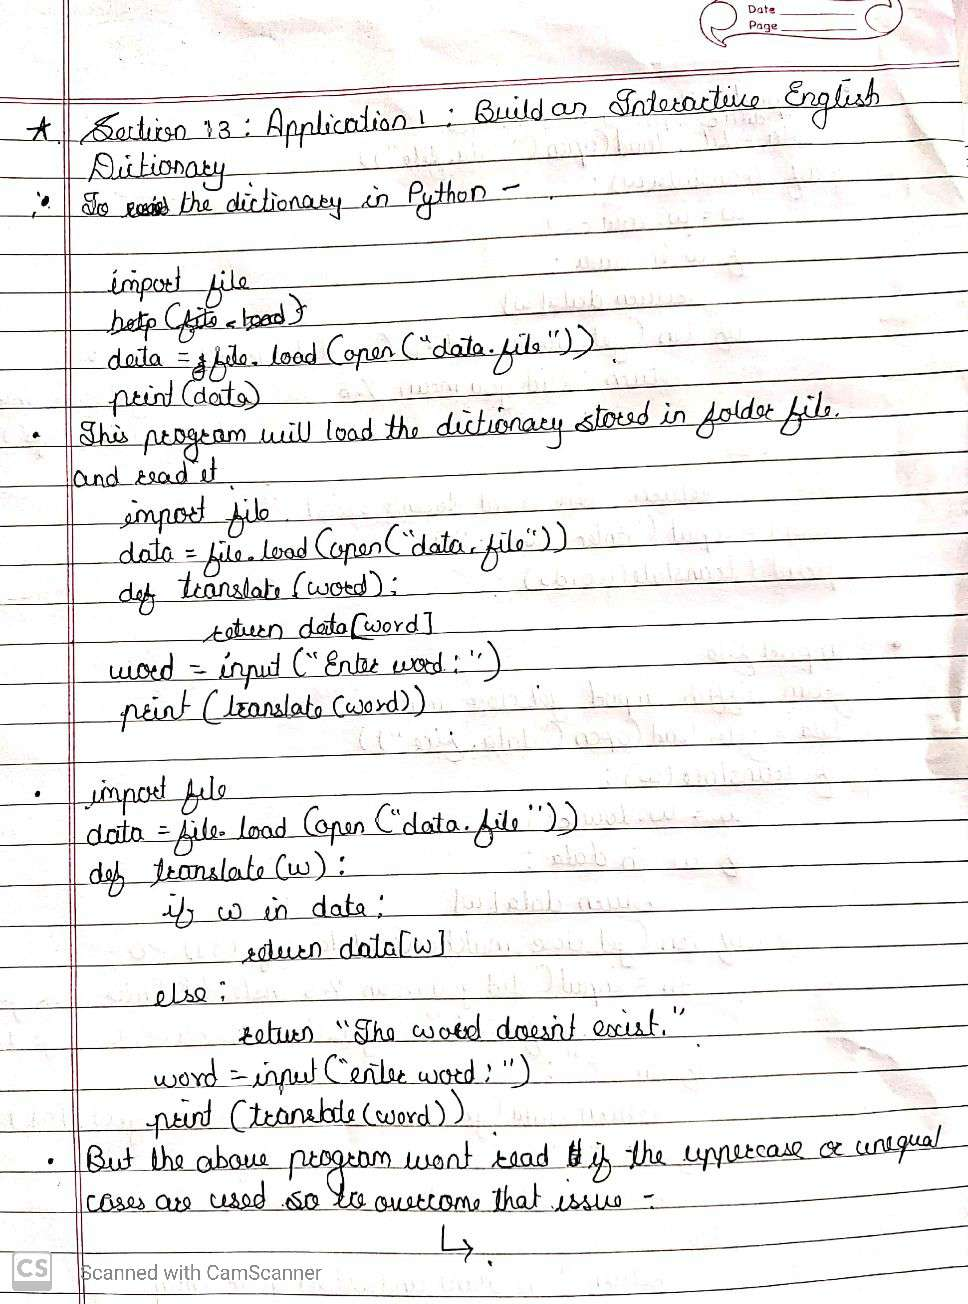 Date
Page
* Section 13 : Application 1 : Build an Interactive English
Dictionary
To read the dictionary in Python -
import file
help (file.load)
data = file.load (open ("data.file"))
print (data)
• This program will load the dictionary stored in folder file.
and read it.
import file
data = file.load (open ("data.file"))
def translate (word):
return data[word]
word = input ("Enter word : ")
print (translate (word))
• import file
data = file.load (open ("data.file"))
def translate (w) :
if w in data :
return data[w]
else :
return "The word doesn't exist."
word = input ("enter word : ")
print (translate (word))
• But the above program wont read if the uppercase or unequal
cases are used so to overcome that issue -
↳
CS Scanned with CamScanner